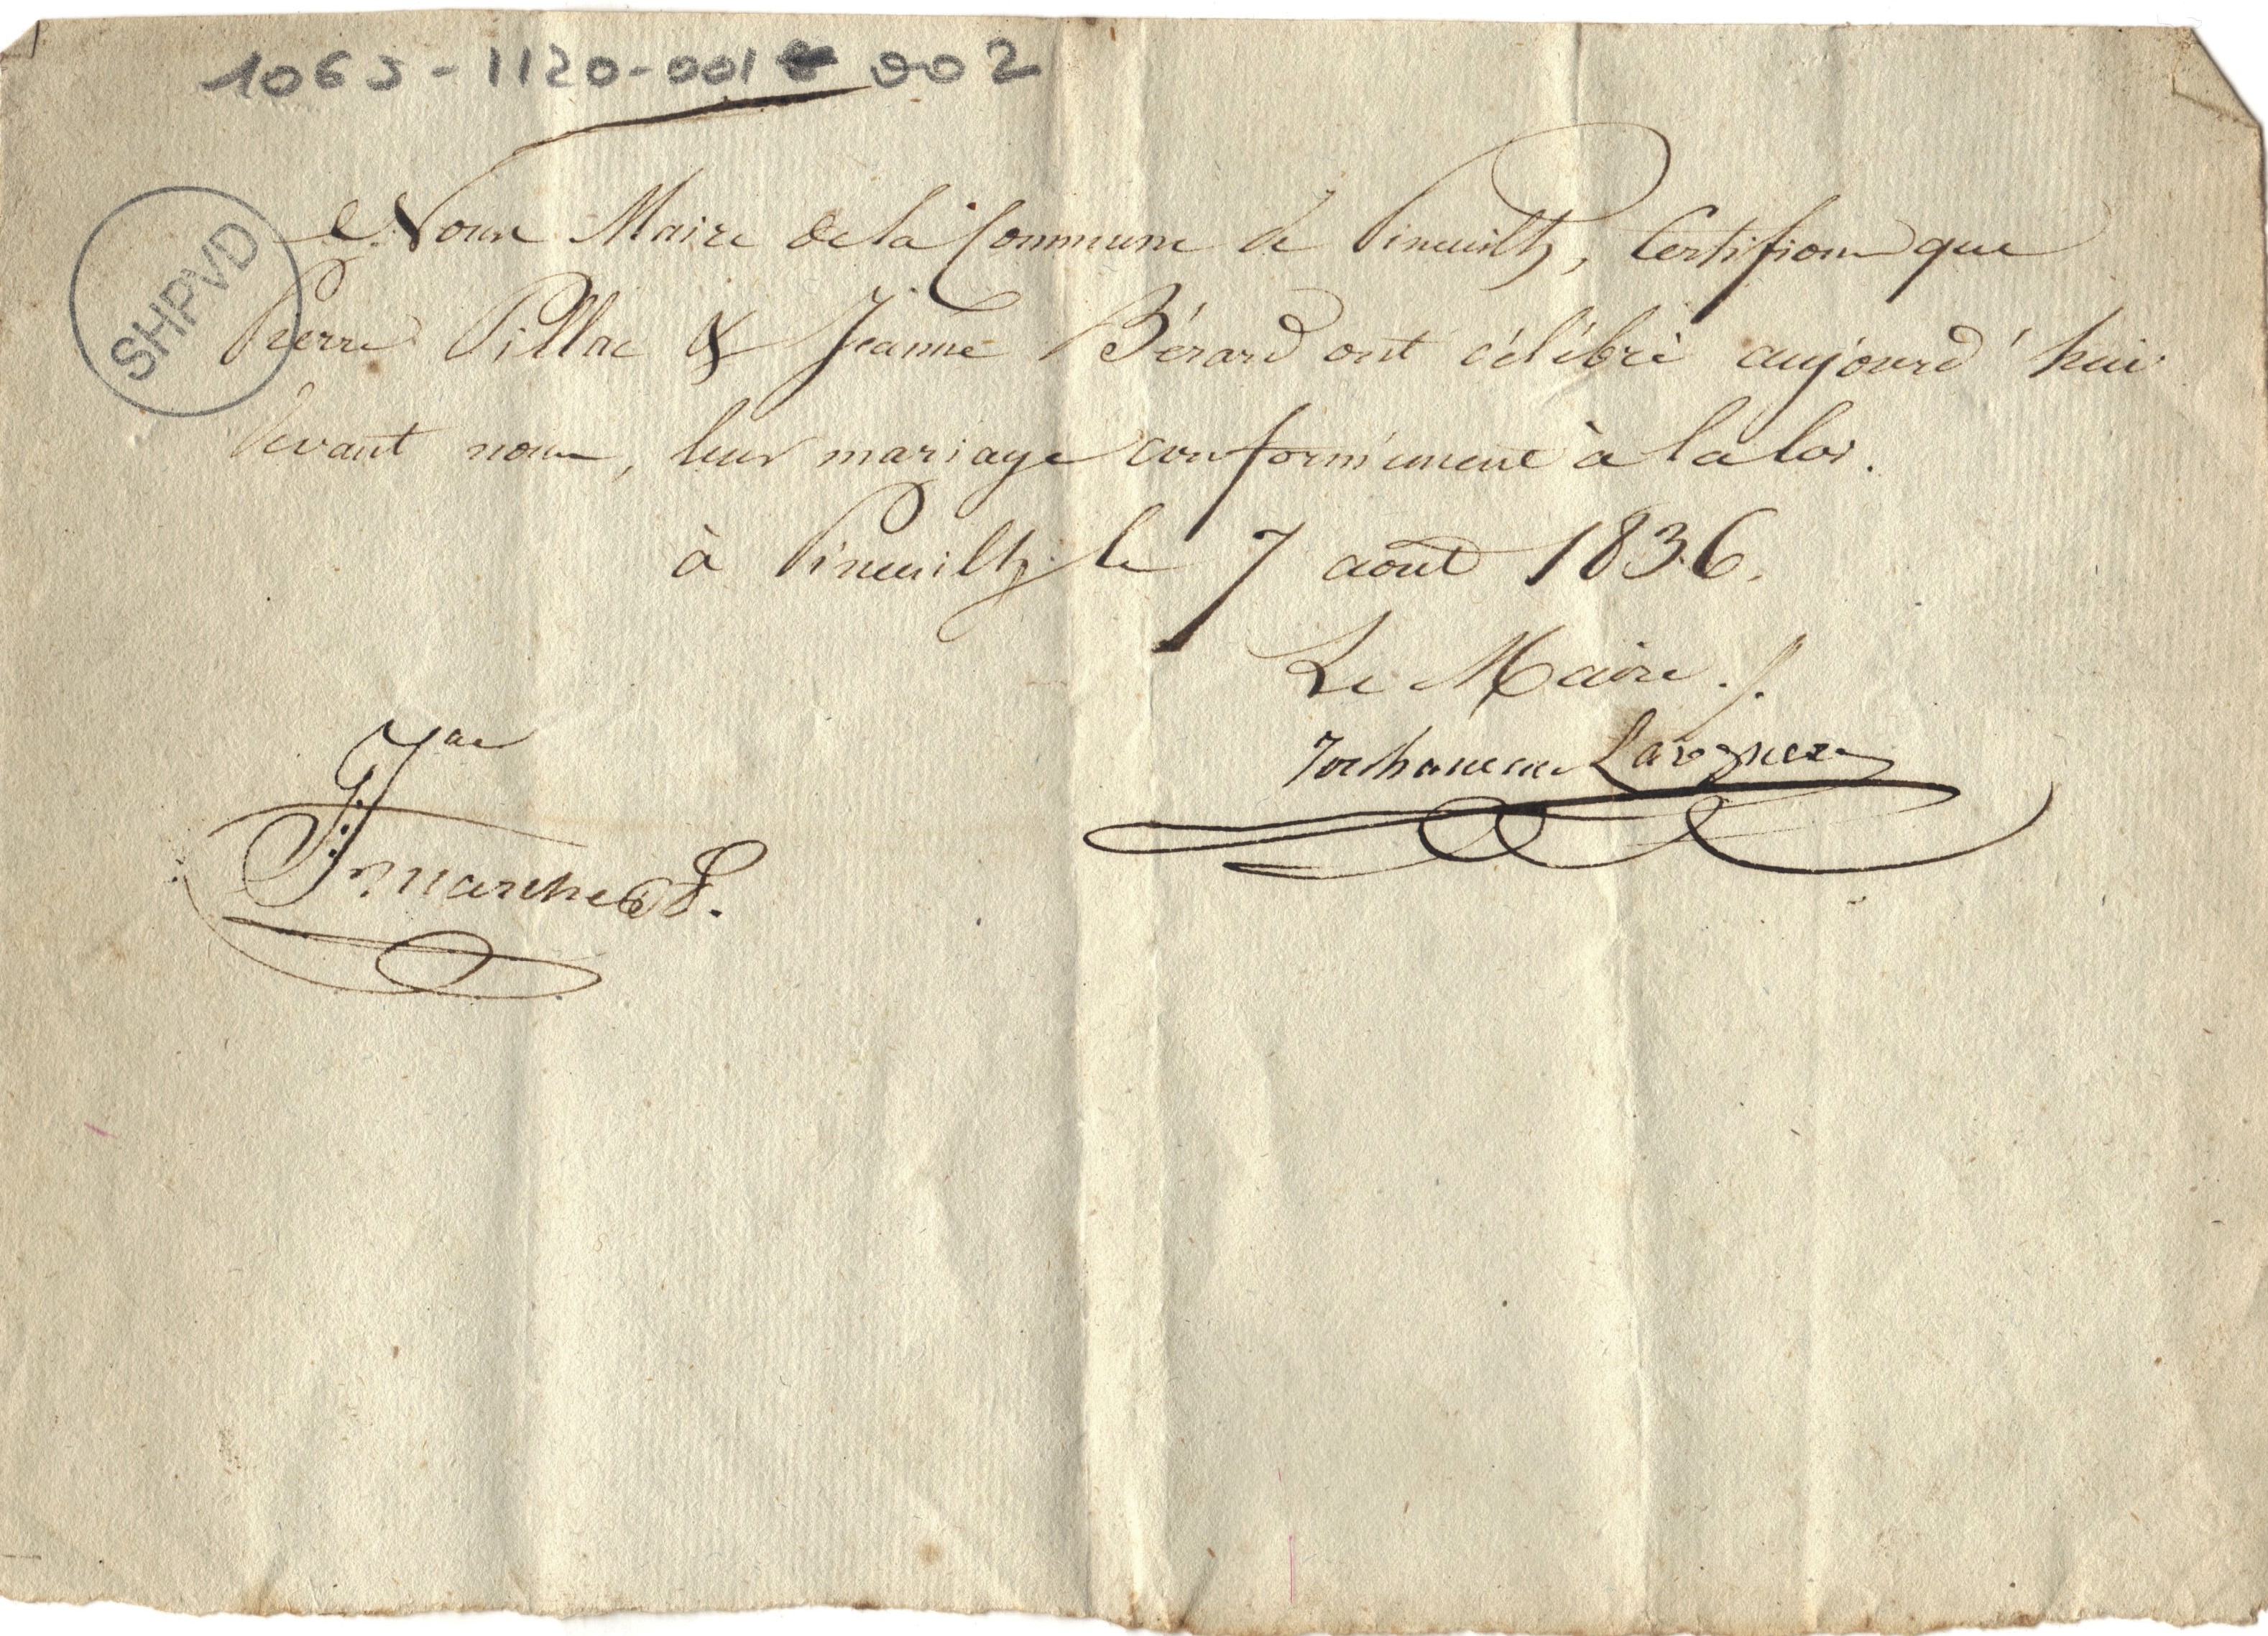 1063-1120-001 002
SHPVD
Nous Maire de la Commune de Pineuilh, Certifions que
Pierre Pillac & Jeanne Bérard ont célébré aujourd'hui
devant nous, leur mariage conformément à la loi.
à Pineuilh le 7 août 1836.
Le Maire